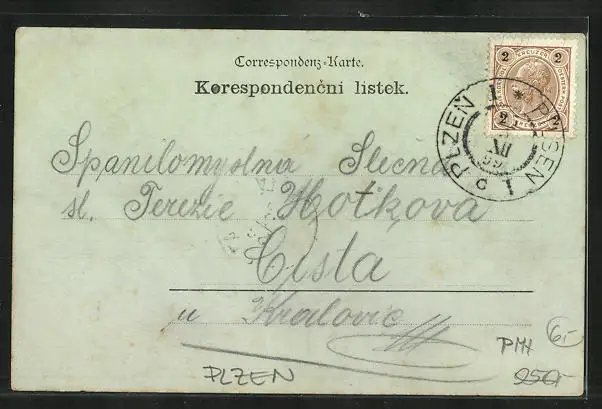 Correspondenz-Karte.
Korespondenční lístek.
2 KREUZER 2
2
PLZEN 1 * PILSEN 1
XII
99
Spanilomyslná Slečna
sl. Terezie Hotkova
Čista
u Kralovic
PLZEN
PMH
6,-
250,-